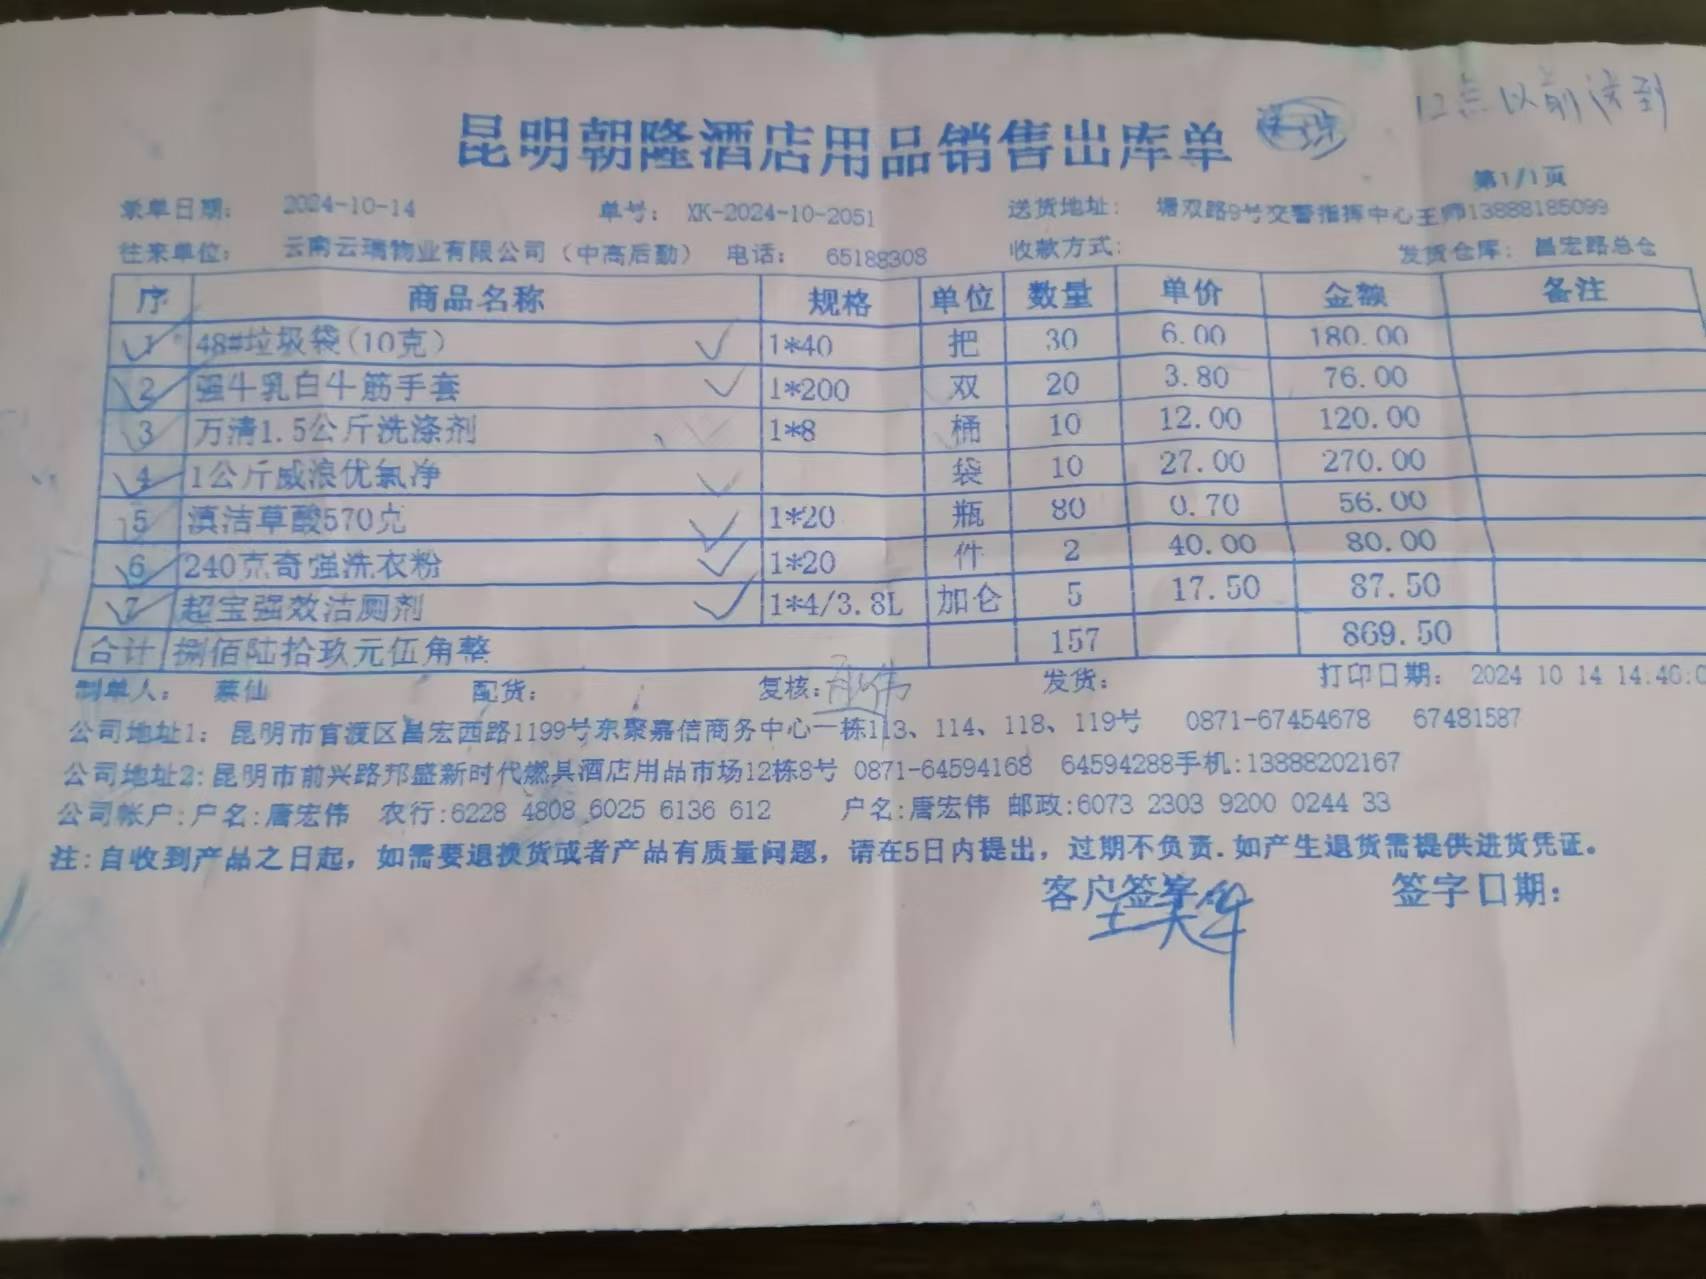 12点以前送到
昆明朝隆酒店用品销售出库单
第1/1页
录单日期： 2024-10-14 单号： XK-2024-10-2051 送货地址： 塘双路9号交警指挥中心王师13888185099
往来单位： 云南云瑞物业有限公司（中高后勤） 电话： 65188308 收款方式： 发货仓库： 昌宏路总仓
序 商品名称 规格 单位 数量 单价 金额 备注
1 48#垃圾袋(10克) 1*40 把 30 6.00 180.00
2 强牛乳白牛筋手套 1*200 双 20 3.80 76.00
3 万清1.5公斤洗涤剂 1*8 桶 10 12.00 120.00
4 1公斤威浪优氯净 袋 10 27.00 270.00
5 滇洁草酸570克 1*20 瓶 80 0.70 56.00
6 240克奇强洗衣粉 1*20 件 2 40.00 80.00
7 超宝强效洁厕剂 1*4/3.8L 加仑 5 17.50 87.50
合计 捌佰陆拾玖元伍角整 157 869.50
制单人： 蔡仙 配货： 复核： 发货： 打印日期： 2024 10 14 14:46:0
公司地址1： 昆明市官渡区昌宏西路1199号东聚嘉信商务中心一栋113、114、118、119号 0871-67454678 67481587
公司地址2:昆明市前兴路邦盛新时代燃具酒店用品市场12栋8号 0871-64594168 64594288手机:13888202167
公司帐户:户名:唐宏伟 农行:6228 4808 6025 6136 612 户名:唐宏伟 邮政:6073 2303 9200 0244 33
注:自收到产品之日起，如需要退换货或者产品有质量问题，请在5日内提出，过期不负责.如产生退货需提供进货凭证。
客户签字： 签字日期：